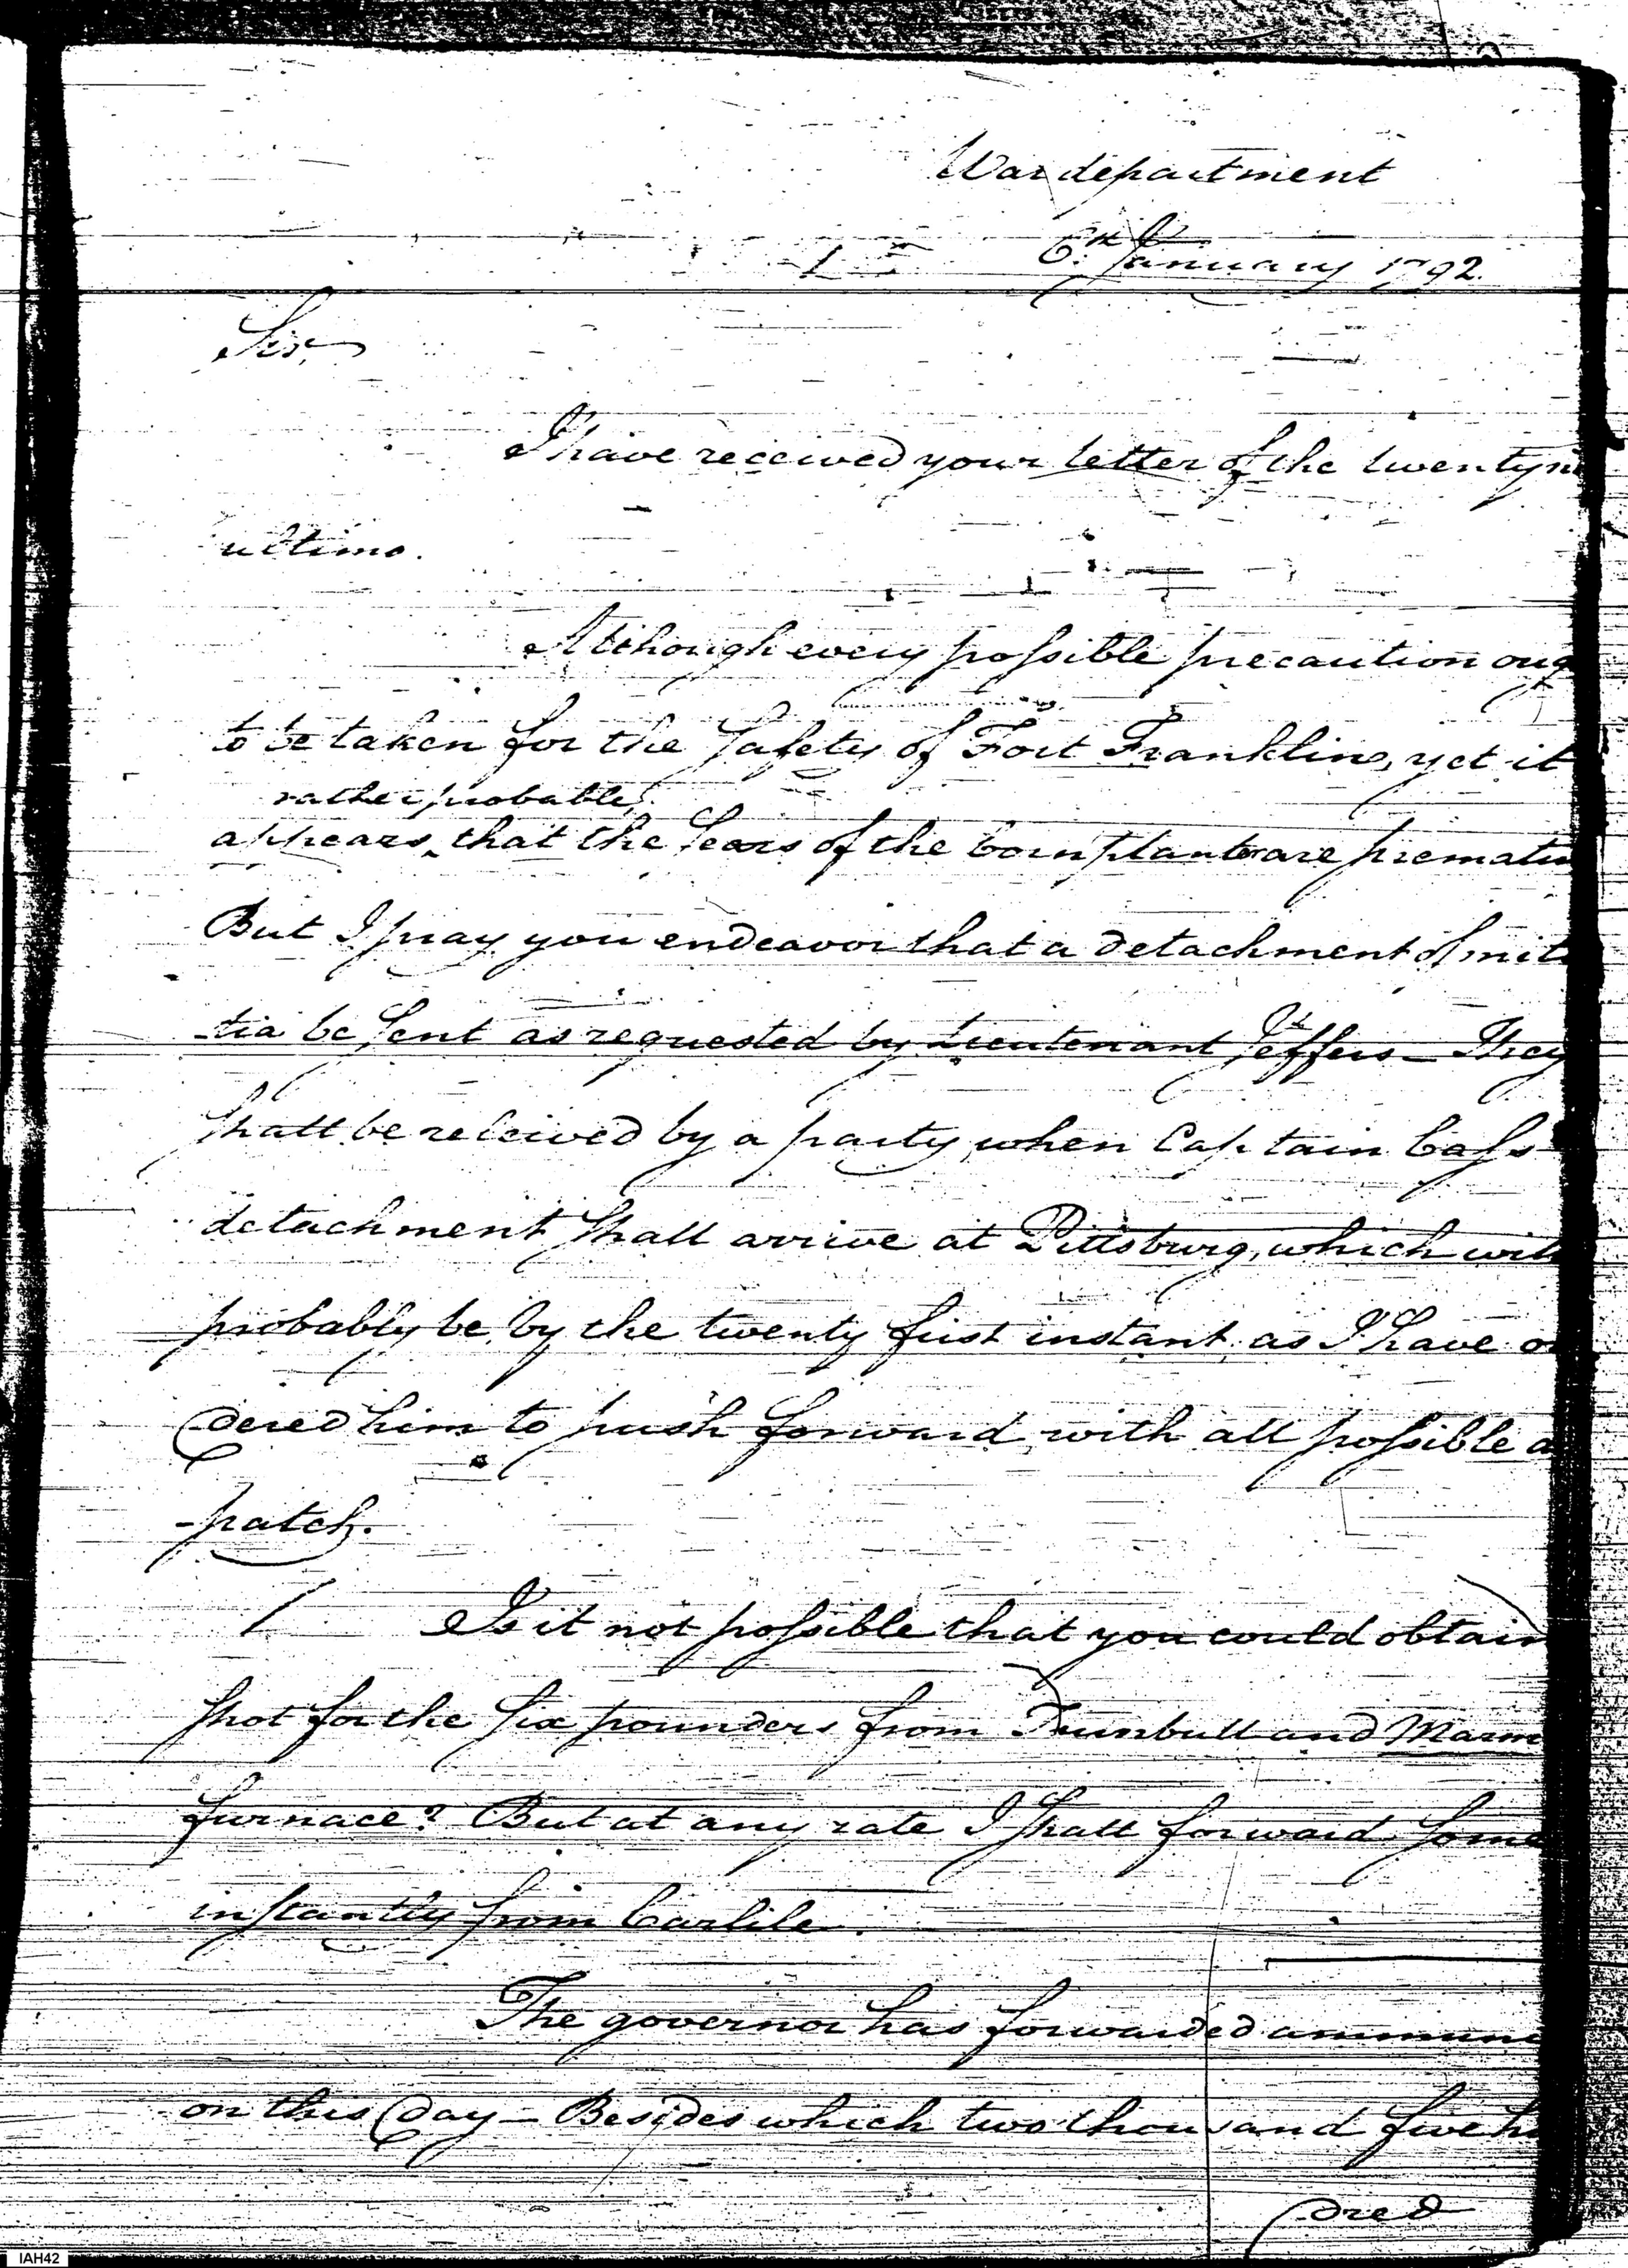 War department
6th January 1792.
Sir,
I have received your letter of the twenty ni
ultimo.
Although every possible precaution oug
to be taken for the safety of Fort Franklin, yet it
rather probable,
appears, that the fears of the Cornplanter are prematu
But I pray you endeavor that a detachment of mili
-tia be sent as requested by Lieutenant Jeffers – They
shall be releived by a party, when Captain Cass
detachment shall arrive at Pittsburg, which will
probably be by the twenty first instant as I have or
dered him to push forward with all possible d
-patch.
Is it not possible that you could obtain
shot for the six pounders from Turnbull and Marm
furnace? But at any rate I shall forward some
instantly from Carlile.
The governor has forwarded ammuni
on this day – Besides which two thousand five hu
dred
IAH42